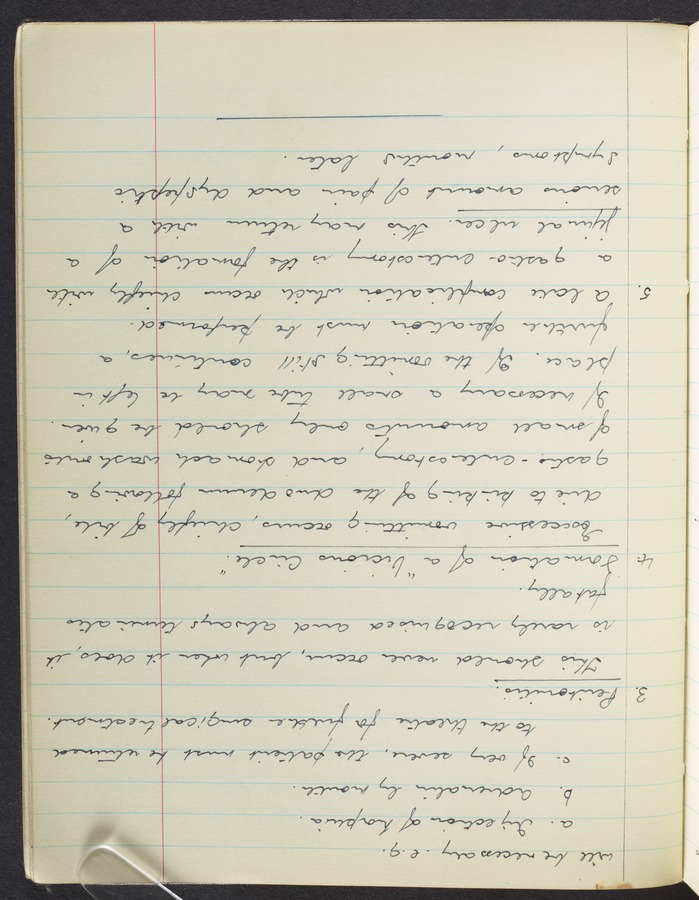 will be necessary. e.g.
a. Injection of hapivia.
b. Adrenalin by mouth.
c. If very severe, the patient must be returned
to the theatre for further surgical treatment.
3. Peritonitis.
This should never occur, but when it does, it
is rarely recognised and always terminates
fatally.
4. Formation of a "Vicious Circle".
Excessive vomitting occurs, chiefly of bile,
due to kinking of the duodenum following a
gastro-enterostomy, and stomach washouts
of small amounts only should be given.
If necessary a small tube may be left in
place. If the vomitting still continues, a
further operation must be performed.
5. A late complication which occurs chiefly with
a gastro-enterostomy is the formation of a
jejunal ulcer. This may return with a
serious amount of pain and dyspeptic
symptoms, months later.